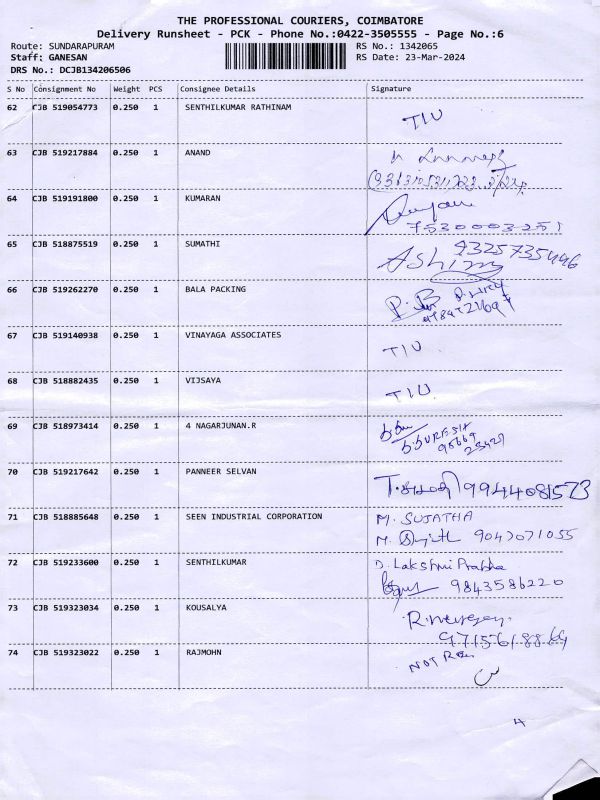 THE PROFESSIONAL COURIERS, COIMBATORE
Delivery Runsheet - PCK - Phone No.:0422-3505555 - Page No.:6
Route: SUNDARAPURAM RS No.: 1342065
Staff: GANESAN RS Date: 23-Mar-2024
DRS No.: DCJB134206506
S No Consignment No Weight PCS Consignee Details Signature
62 CJB 519054773 0.250 1 SENTHILKUMAR RATHINAM TIU
63 CJB 519217884 0.250 1 ANAND
64 CJB 519191800 0.250 1 KUMARAN
7530003251
65 CJB 518875519 0.250 1 SUMATHI 9325735446
66 CJB 519262270 0.250 1 BALA PACKING
67 CJB 519140938 0.250 1 VINAYAGA ASSOCIATES TIU
68 CJB 518882435 0.250 1 VIJSAYA TIU
69 CJB 518973414 0.250 1 4 NAGARJUNAN.R
70 CJB 519217642 0.250 1 PANNEER SELVAN 9944081573
71 CJB 518885648 0.250 1 SEEN INDUSTRIAL CORPORATION M. SUJATHA
9047071055
72 CJB 519233600 0.250 1 SENTHILKUMAR D. Lakshmi Prabha
9843586220
73 CJB 519323034 0.250 1 KOUSALYA
74 CJB 519323022 0.250 1 RAJMOHN NOT
4